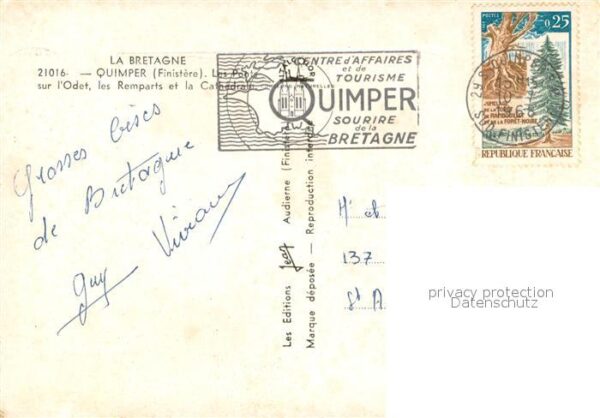 LA BRETAGNE
21016. — QUIMPER (Finistère). Les Ponts
sur l'Odet, les Remparts et la Cathédrale
CENTRE d'AFFAIRES
et de
TOURISME
QUIMPER
SOURIRE
de la
BRETAGNE
POSTES 0,25
DE RAMBOUILLET
DE LA FORÊT-NOIRE
REPUBLIQUE FRANÇAISE
Grosses bises
de Bretagne
Guy Viviane
Les Editions Jean Audierne (Finistère)
Marque déposée — Reproduction interdite
M' et
137
St A
privacy protection
Datenschutz